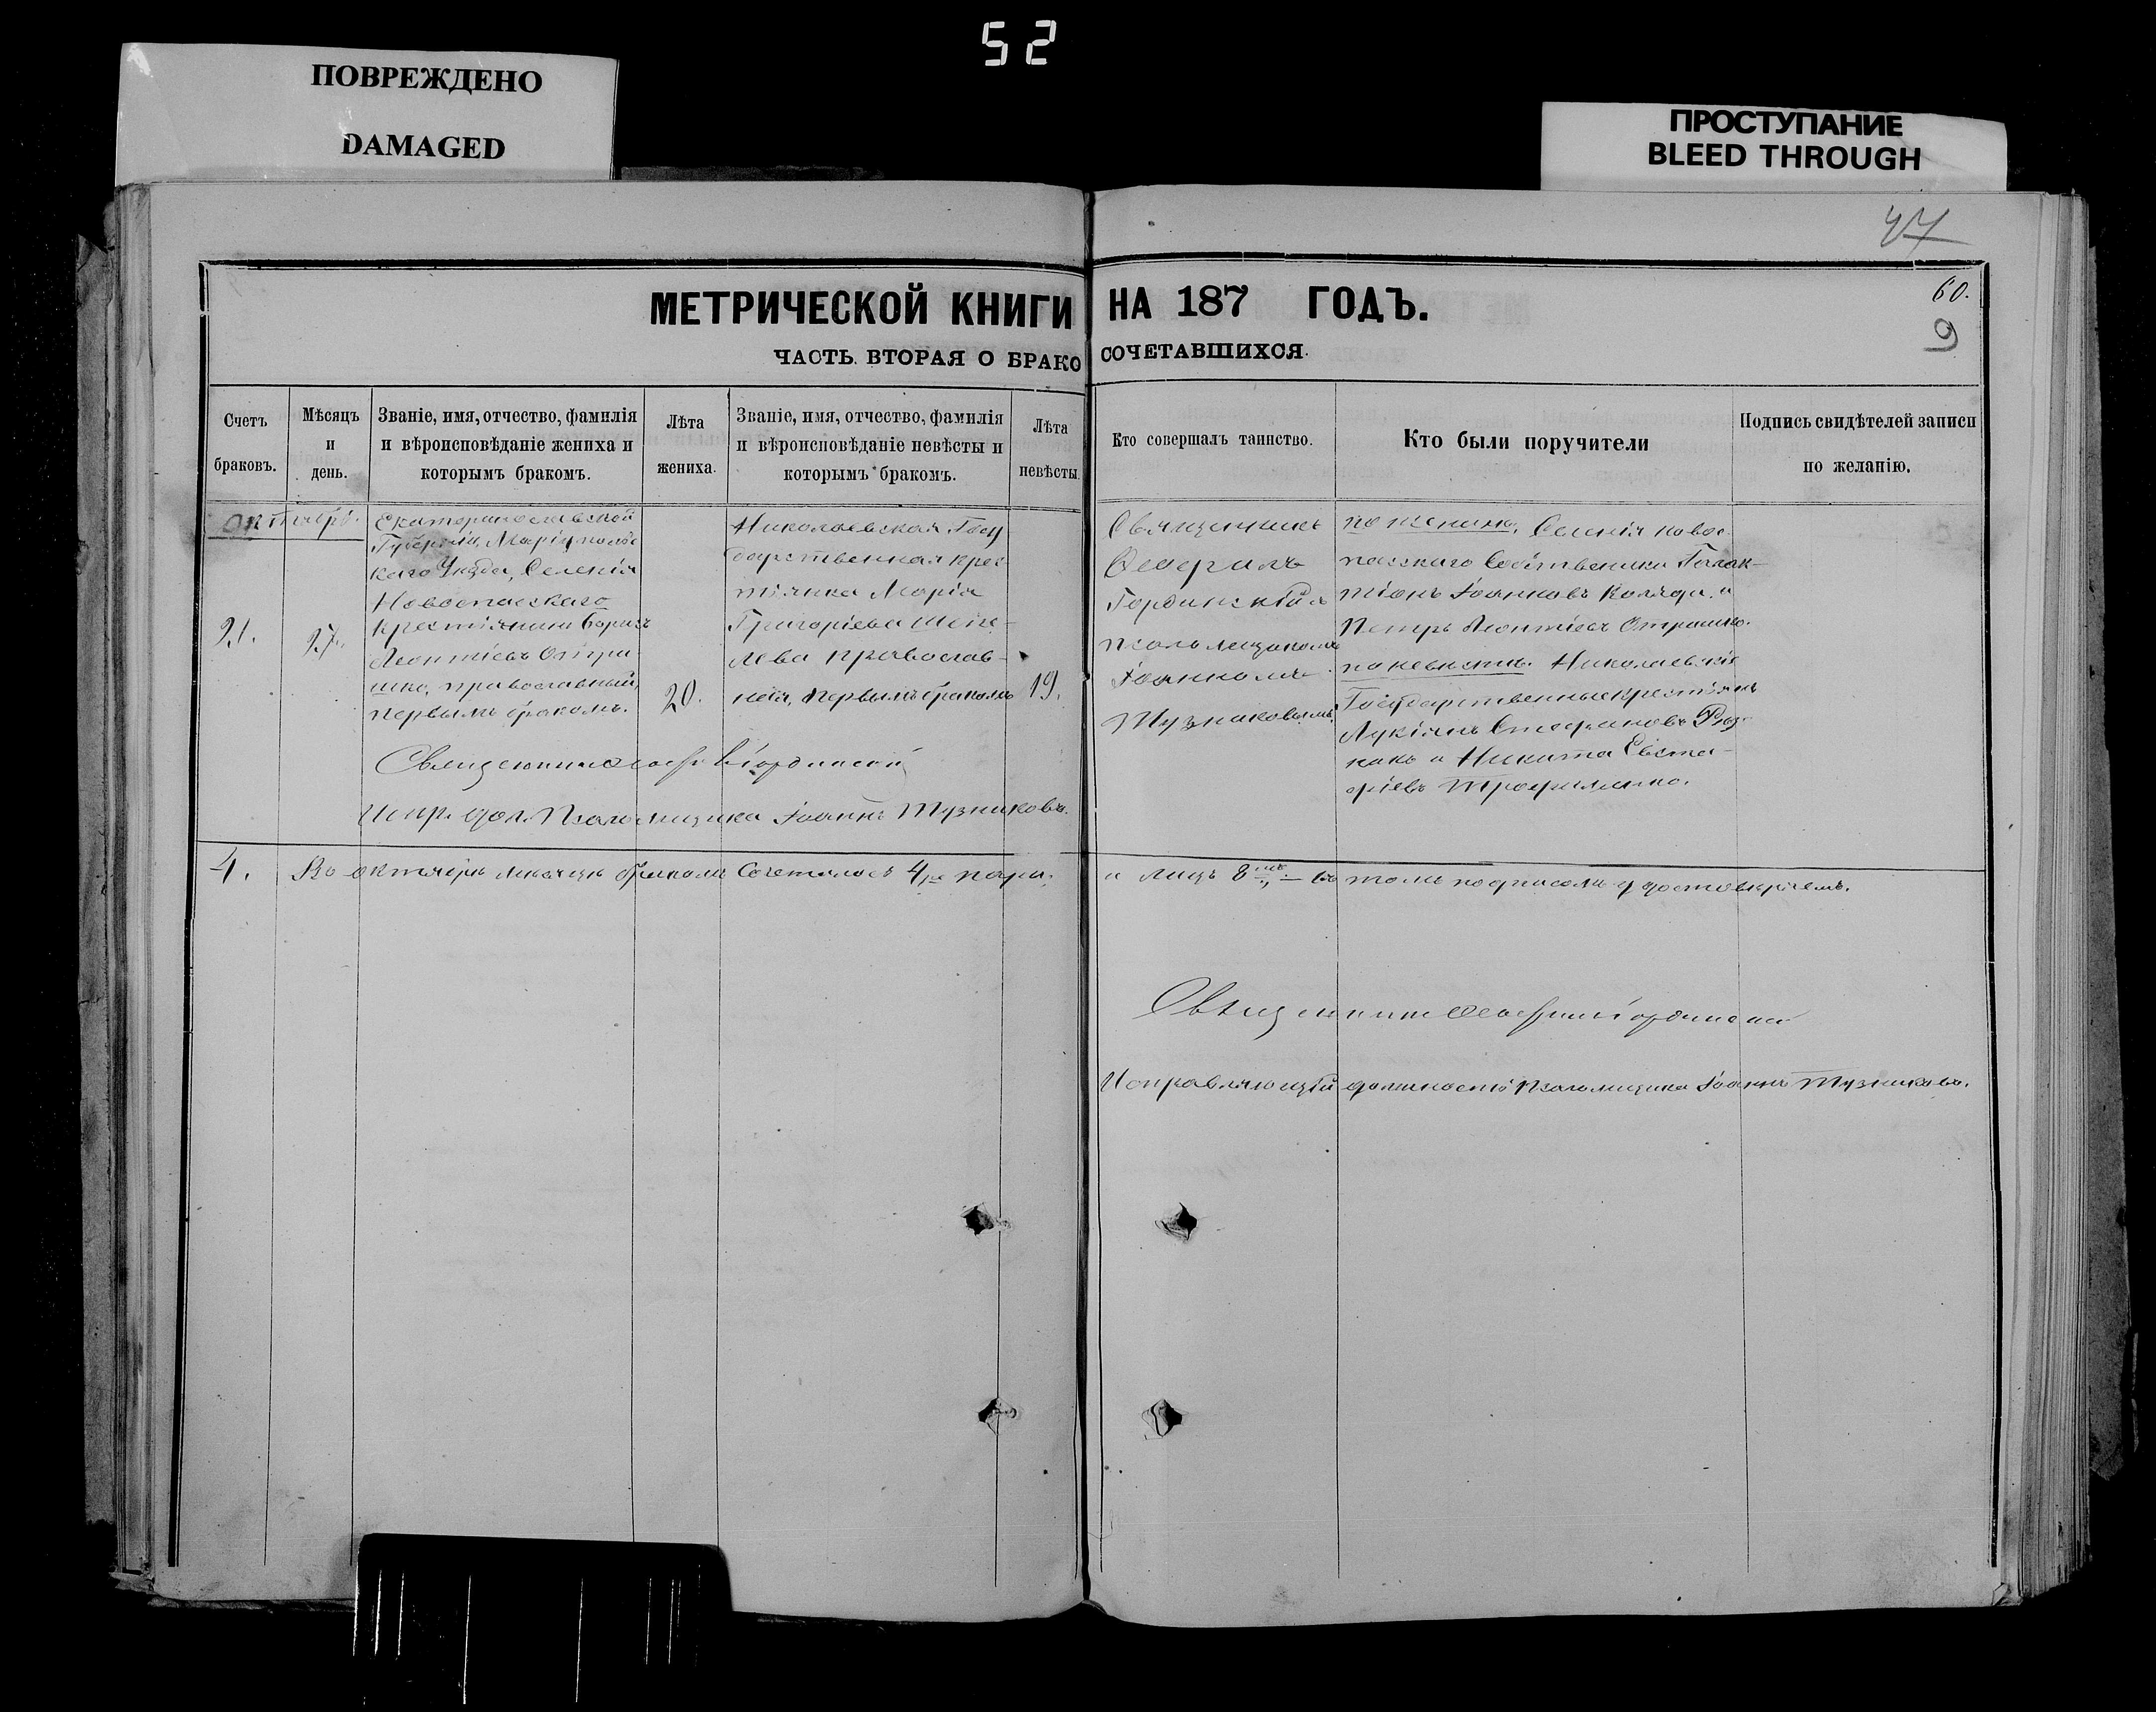 52
ПОВРЕЖДЕНО
DAMAGED
ПРОСТУПАНИЕ
BLEED THROUGH
47
60.
9
МЕТРИЧЕСКОЙ КНИГИ НА 187 ГОДЪ.
ЧАСТЬ ВТОРАЯ О БРАКОСОЧЕТАВШИХСЯ.
Счетъ
браковъ.
Мѣсяцъ
и
день.
Званіе, имя, отчество, фамилія
и вѣроисповѣданіе жениха и
которымъ бракомъ.
Лѣта
жениха.
Званіе, имя, отчество, фамилія
и вѣроисповѣданіе невѣсты и
которымъ бракомъ.
Лѣта
невѣсты.
Кто совершалъ таинство.
Кто были поручители
Подпись свидѣтелей записи
по желанію.
21.
27.
Екатеринославской
Губерніи, Маріуполь
каго Уѣзда, Селенія
Новоспаскаго
крестьянинъ Борисъ
Леонтіевъ Отра-
шко, православный,
первымъ бракомъ.
20.
Николаевская Госу
дарственная крес-
тьянка Марія
Григоріева
православ-
ная, первымъ бракомъ
19.
Священникъ
псаломщикомъ
Іоанномъ
Тузниковымъ
по женихѣ, Селенія Новос-
паскаго Собственники
Іоанновъ Коляда и
Петръ Леонтіевъ Отрашко.
по невѣстѣ. Николаевскіе
Государственные крестьяне
Лукіянъ Стефановъ
и Никита Евста-
фіевъ Трофименко.
Священникъ
Испр. дол. Псаломщика Іоаннъ Тузниковъ.
4.
Въ октябрѣ мѣсяцѣ бракомъ сочеталось 4ре пары,
и лицъ 8мь въ томъ подписомъ удостовѣряемъ.
Священникъ
Исправляющій должность Псаломщика Іоаннъ Тузниковъ.